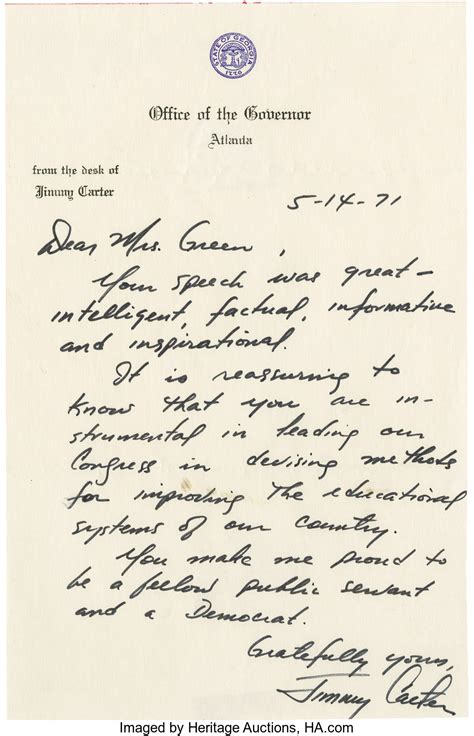 STATE OF GEORGIA
1776
Office of the Governor
Atlanta
from the desk of
Jimmy Carter
5-14-71
Dear Mrs. Green,
Your speech was great -
intelligent, factual, informative
and inspirational.
It is reassuring to
know that you are in-
strumental in leading our
Congress in devising methods
for improving the educational
systems of our country.
You make me proud to
be a fellow public servant
and a Democrat.
Gratefully yours,
Jimmy Carter
Imaged by Heritage Auctions, HA.com